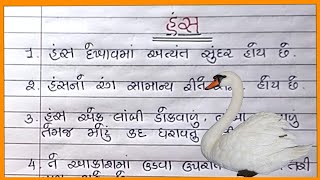 હંસ
1. હંસ દેખાવમાં અત્યંત સુંદર હોય છે.
2. હંસનો રંગ સામાન્ય રીતે હોય છે.
3. હંસ એક લાંબી ડોકવાળું,
તેમજ મોટું કદ ધરાવતું
4. તે આકાશમાં ઉડવા ઉપરાંત તરી